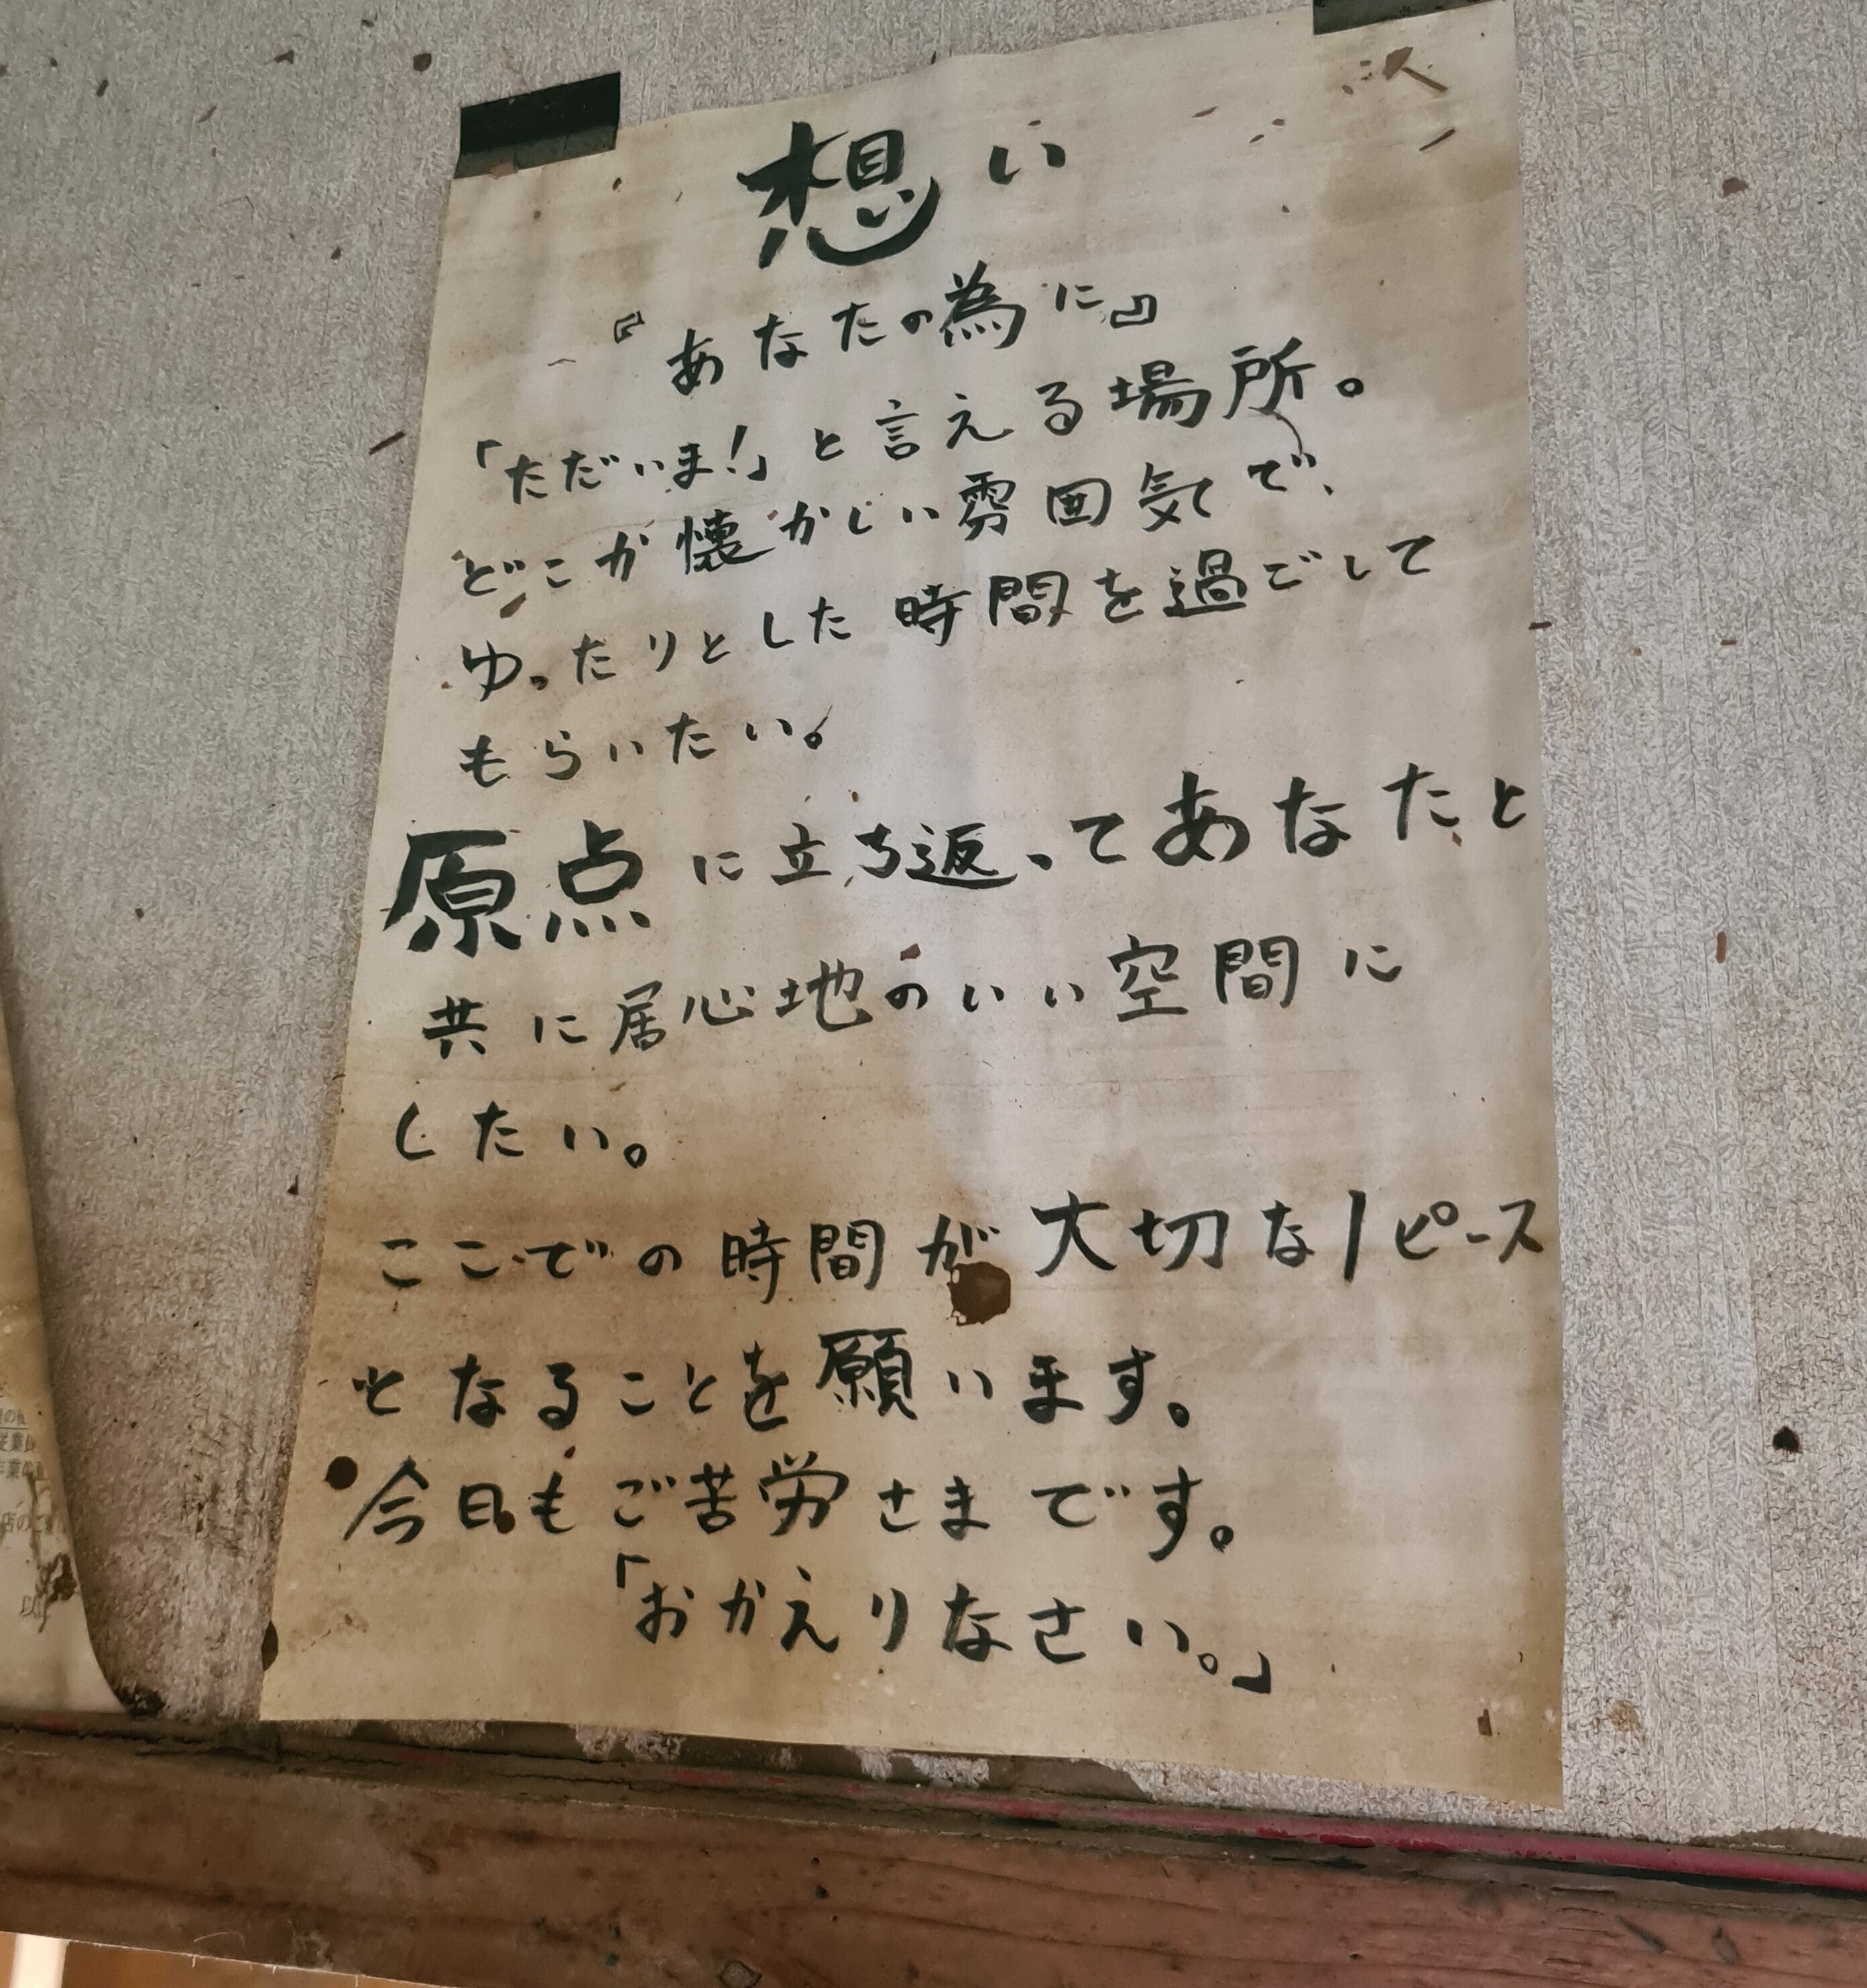 想い
『あなたの為に』
「ただいま!」と言える場所。
どこか懐かしい雰囲気で、
ゆったりとした時間を過ごして
もらいたい。
原点に立ち返ってあなたと
共に居心地のいい空間に
したい。
ここでの時間が大切な1ピース
となることを願います。
今日もご苦労さまです。
「おかえりなさい。」